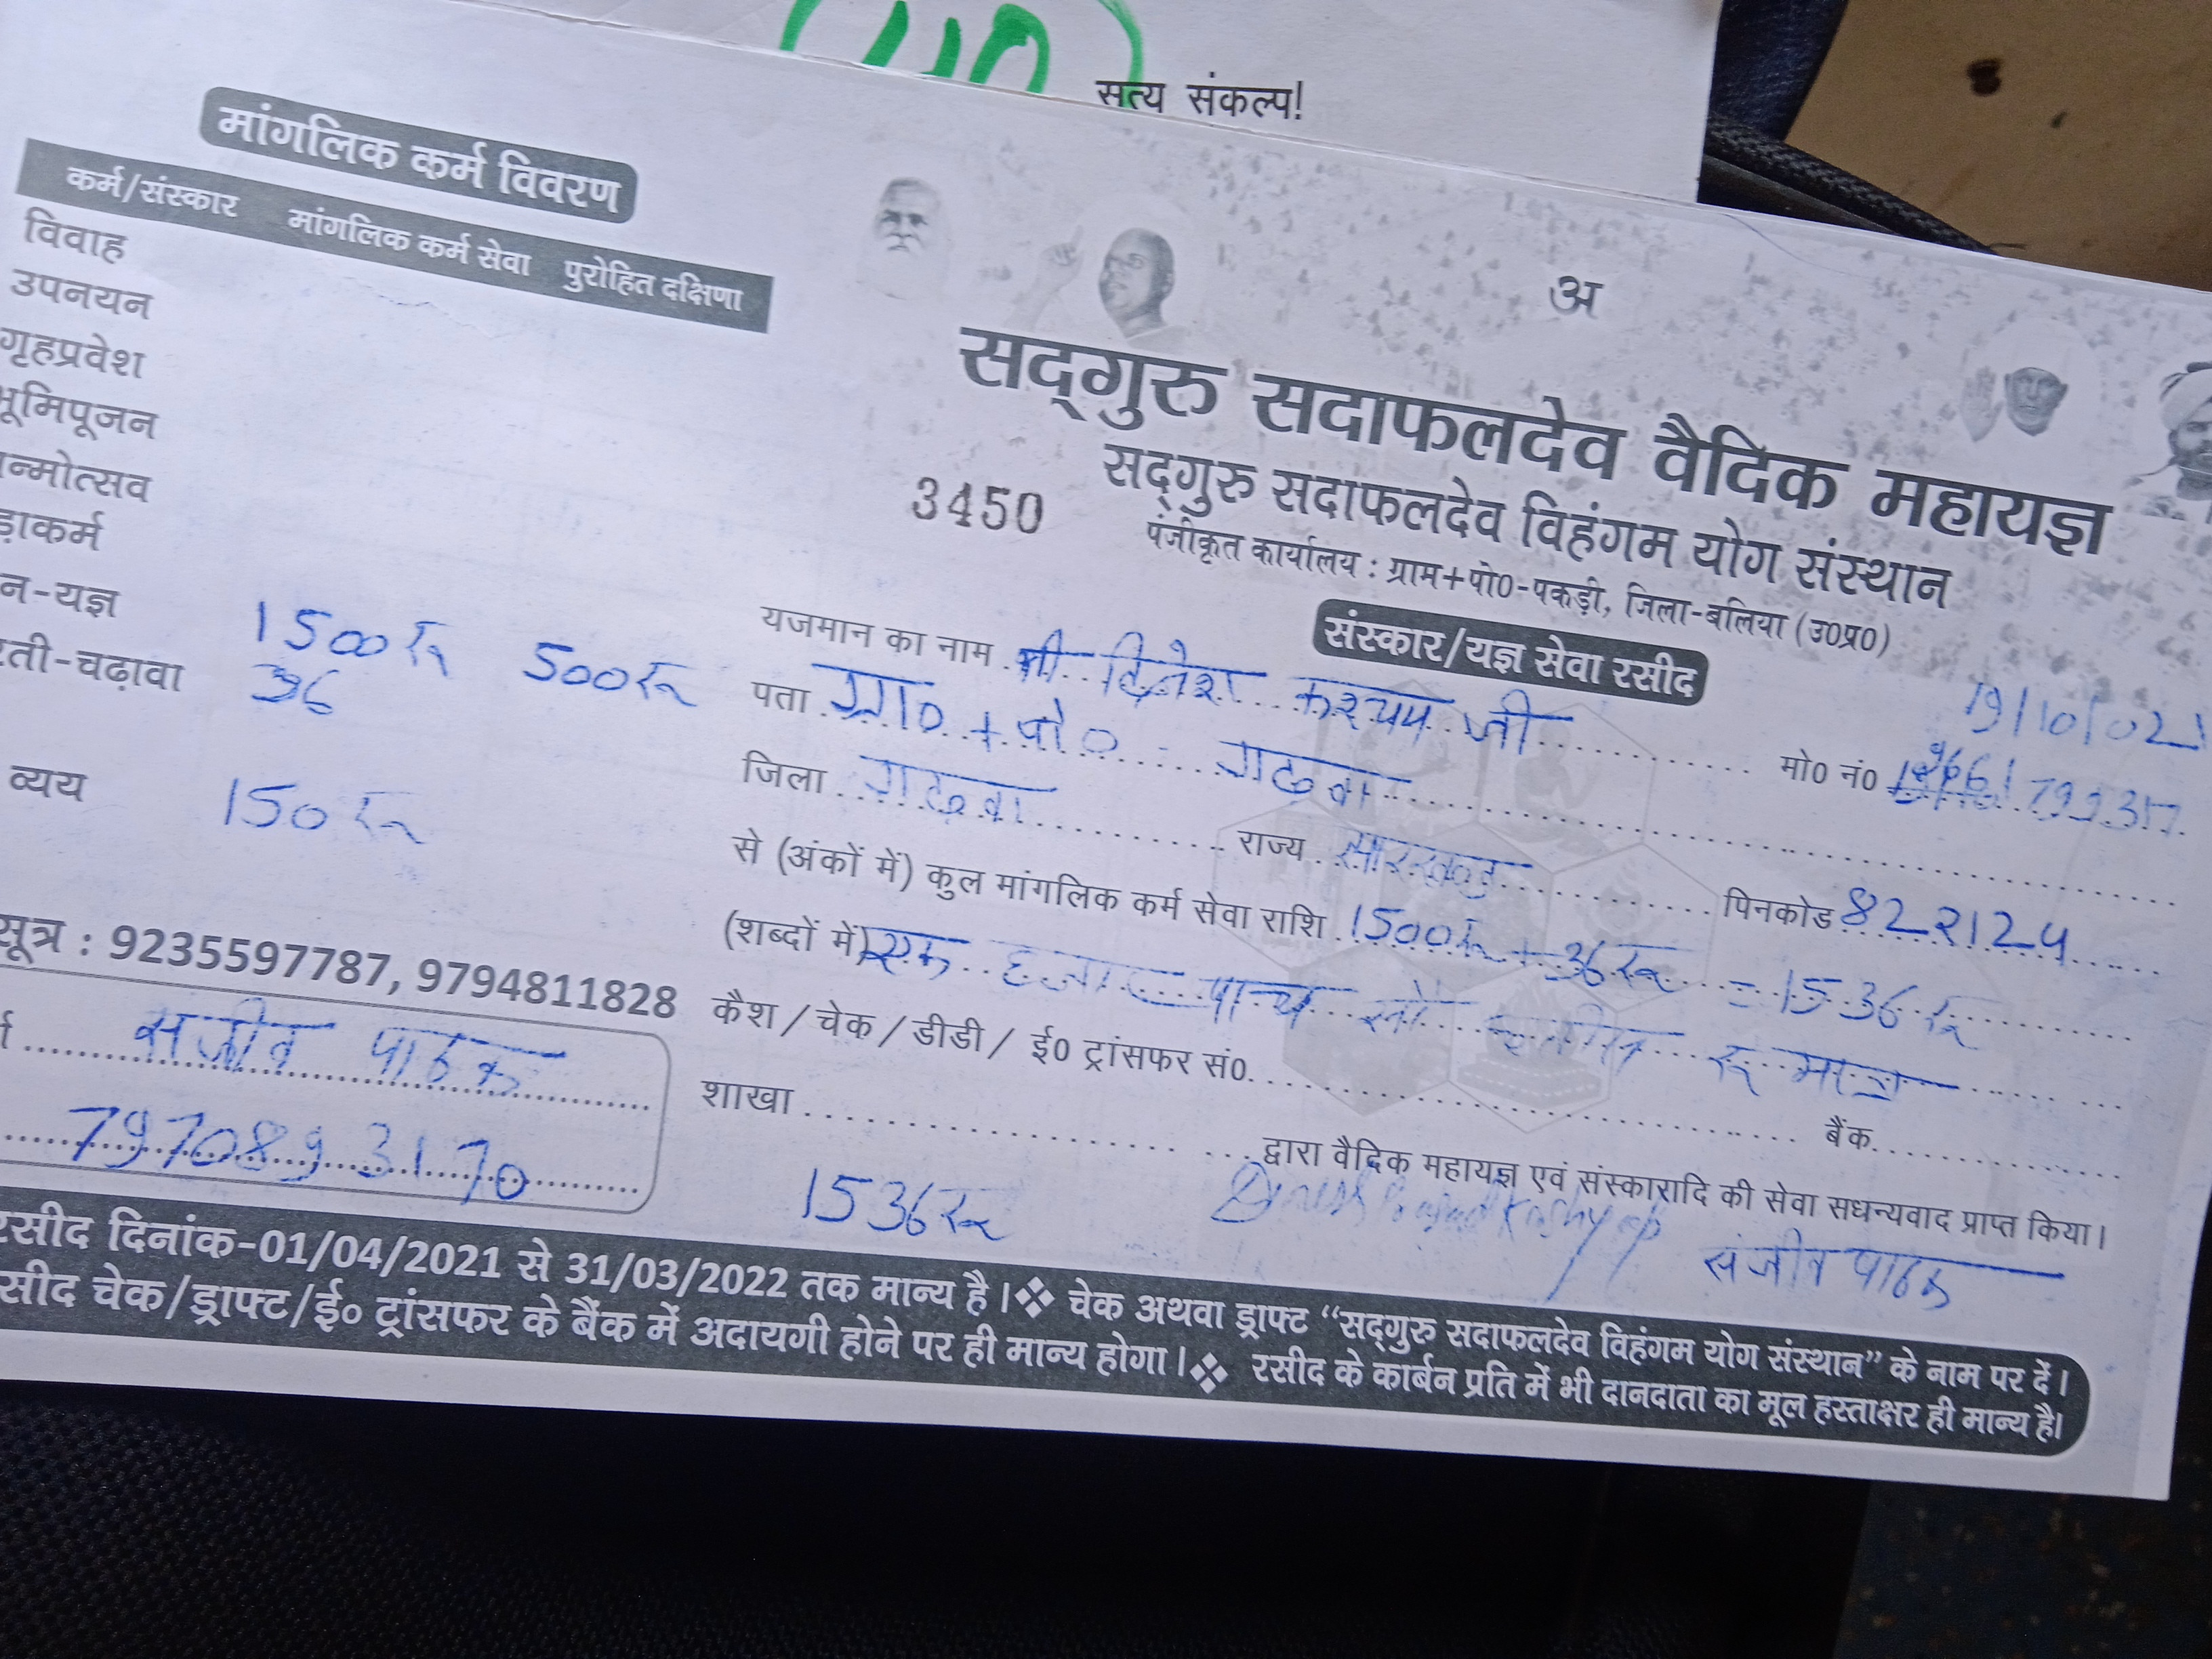 सत्य संकल्प!
मांगलिक कर्म विवरण
कर्म/संस्कार मांगलिक कर्म सेवा पुरोहित दक्षिणा
विवाह
उपनयन
गृहप्रवेश
भूमिपूजन
न्मोत्सव
ड़ाकर्म
न-यज्ञ 1500रू 500रू
रती-चढ़ावा 36
व्यय 150रू
सूत्र : 9235597787, 9794811828
संजीव पाठक
7970893170
अ
सद्गुरु सदाफलदेव वैदिक महायज्ञ
सद्गुरु सदाफलदेव विहंगम योग संस्थान
3450
पंजीकृत कार्यालय : ग्राम+पो0-पकड़ी, जिला-बलिया (उ0प्र0)
संस्कार/यज्ञ सेवा रसीद
19/10/021
यजमान का नाम श्री दिनेश कश्यप जी मो0 नं0
पता ग्रा० + पो० गढ़वा
जिला गढ़वा राज्य झारखण्ड पिनकोड
से (अंकों में) कुल मांगलिक कर्म सेवा राशि 1500रू + 36रू = 1536रू
(शब्दों में) एक हजार पाच सौ छत्तीस रू मात्र
कैश / चेक / डीडी / ई0 ट्रांसफर सं0 बैंक
शाखा द्वारा वैदिक महायज्ञ एवं संस्कारादि की सेवा सधन्यवाद प्राप्त किया।
1536रू Dinesh Prasad Kashyap संजीव पाठक
रसीद दिनांक-01/04/2021 से 31/03/2022 तक मान्य है। ❖ चेक अथवा ड्राफ्ट “सद्गुरु सदाफलदेव विहंगम योग संस्थान” के नाम पर दें।
रसीद चेक/ड्राफ्ट/ई० ट्रांसफर के बैंक में अदायगी होने पर ही मान्य होगा। ❖ रसीद के कार्बन प्रति में भी दानदाता का मूल हस्ताक्षर ही मान्य है।